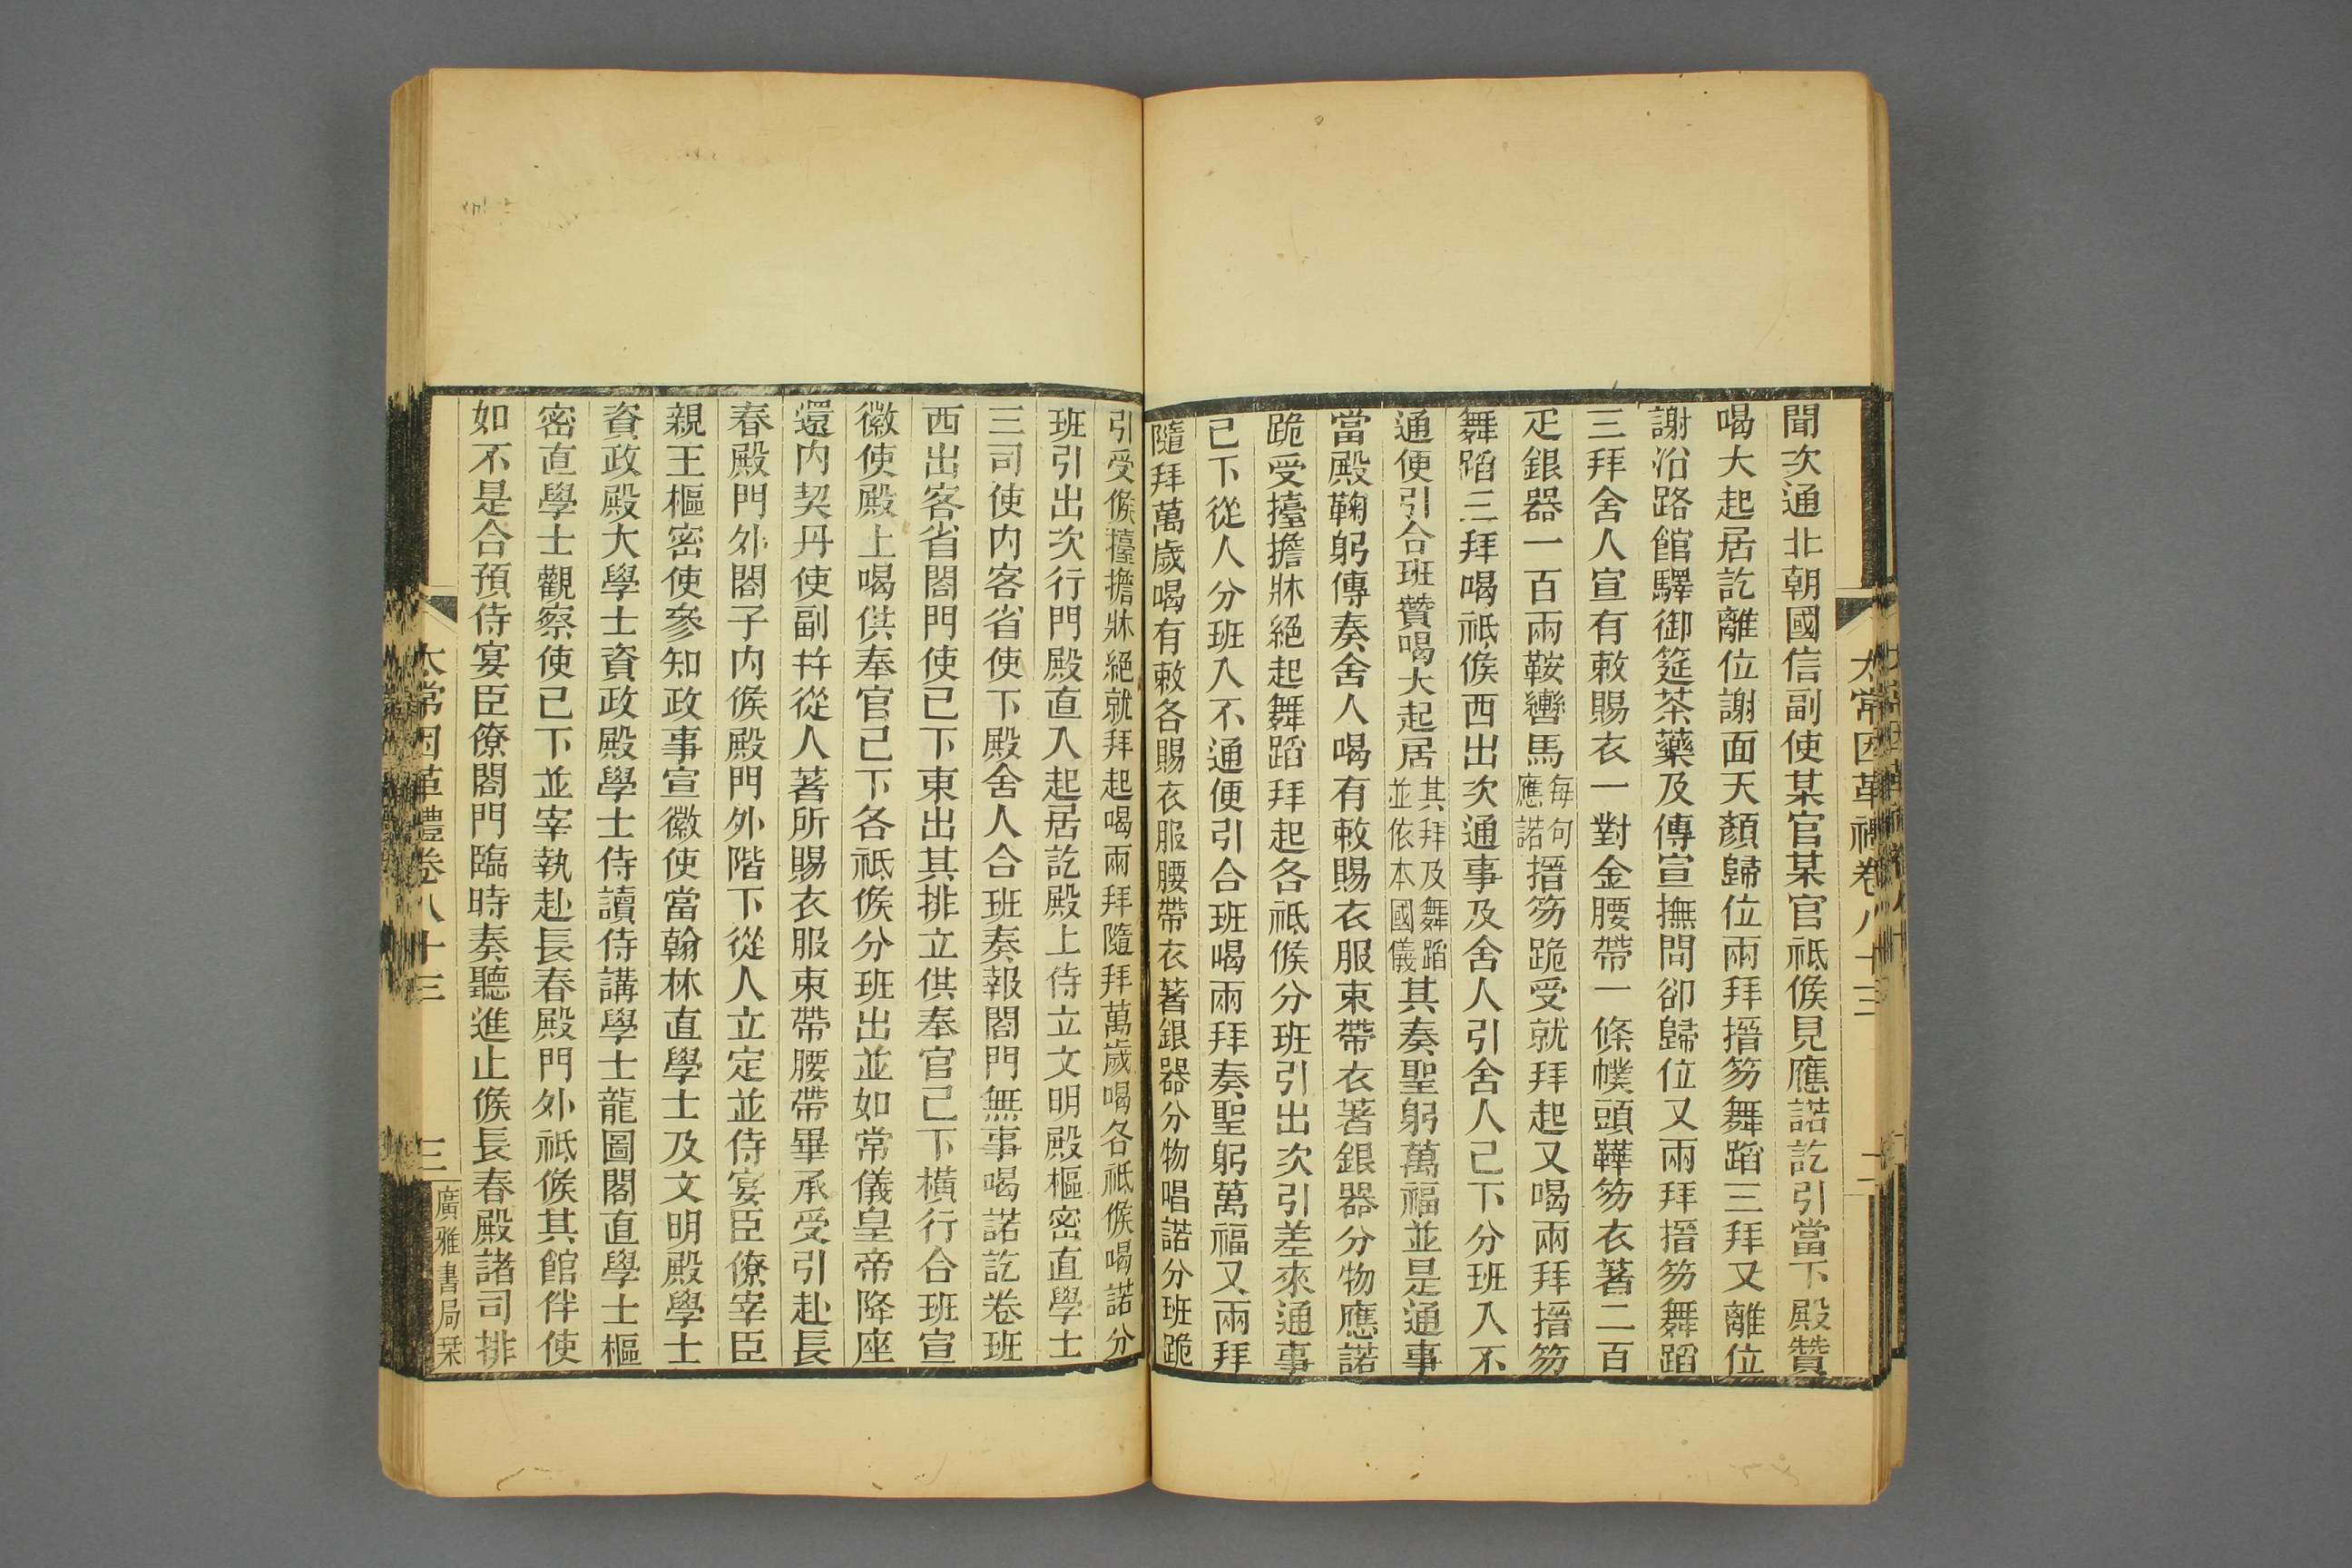 太常因革禮卷八十三
二
聞次通北朝國信副使某官某官祗候見應諾訖引當下殿贊
喝大起居訖離位謝面天顏歸位兩拜搢笏舞蹈三拜又離位
謝沿路館驛御筵茶藥及傳宣撫問卻歸位又兩拜搢笏舞蹈
三拜舍人宣有敕賜衣一對金腰帶一條幞頭鞾笏衣著二百
疋銀器一百兩鞍轡馬每句應諾搢笏跪受就拜起又喝兩拜搢笏
舞蹈三拜喝祗候西出次通事及舍人引舍人已下分班入不
通便引合班贊喝大起居其拜及舞蹈並依本國儀其奏聖躬萬福並是通事
當殿鞠躬傳奏舍人喝有敕賜衣服束帶衣著銀器分物應諾
跪受擡擔牀絕起舞蹈拜起各祗候分班引出次引差來通事
已下從人分班入不通便引合班喝兩拜奏聖躬萬福又兩拜
隨拜萬歲喝有敕各賜衣服腰帶衣著銀器分物唱諾分班跪
引受候擡擔牀絕就拜起喝兩拜隨拜萬歲喝各祗候喝諾分
班引出次行門殿直入起居訖殿上侍立文明殿樞密直學士
三司使內客省使下殿舍人合班奏報閤門無事喝諾訖卷班
西出客省閤門使已下東出其排立供奉官已下橫行合班宣
徽使殿上喝供奉官已下各祗候分班出並如常儀皇帝降座
還內契丹使副幷從人著所賜衣服束帶腰帶畢承受引赴長
春殿門外閤子內候殿門外階下從人立定並侍宴臣僚宰臣
親王樞密使參知政事宣徽使當翰林直學士及文明殿學士
資政殿大學士資政殿學士侍讀侍講學士龍圖閣直學士樞
密直學士觀察使已下並宰執赴長春殿門外祗候其館伴使
如不是合預侍宴臣僚閤門臨時奏聽進止候長春殿諸司排
太常因革禮卷八十三
三
廣雅書局栞